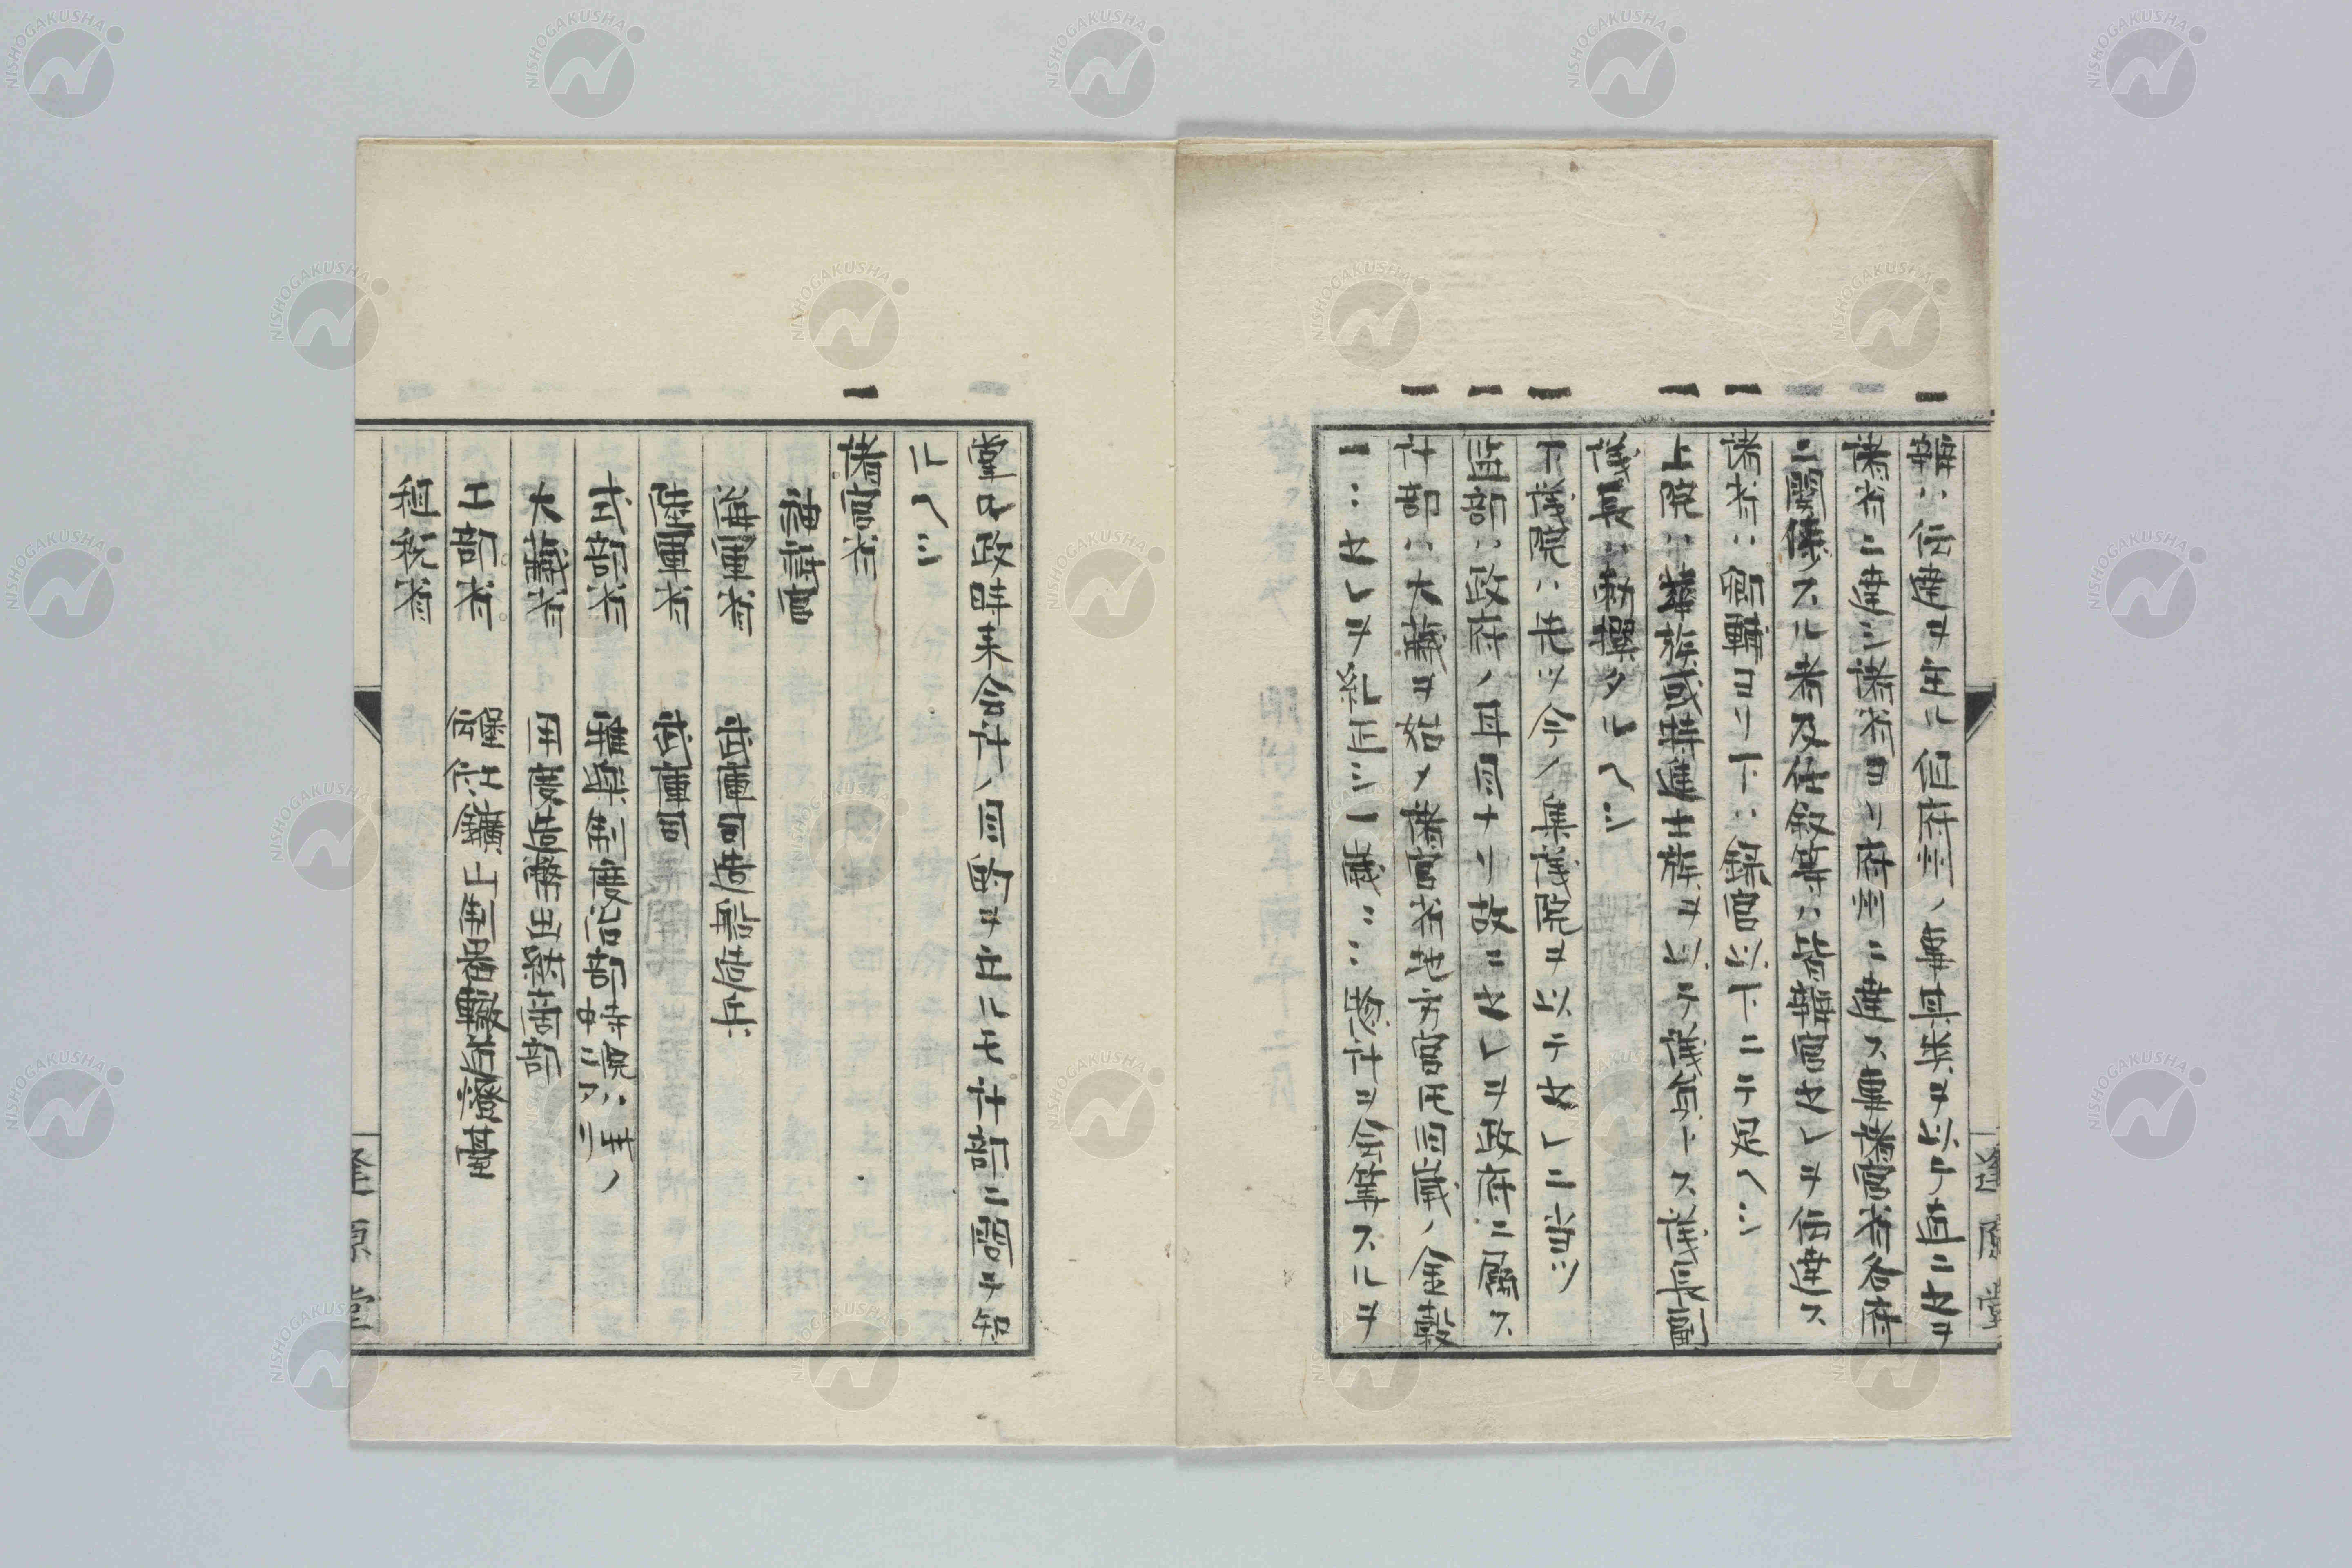 一 辨ハ伝達ヲ主ル但府州ノ事其米ヲ以テ直ニセヲ
諸省ニ達シ諸省ヨリ府州ニ達ス事諸官省各府
ニ関係スル者及任叙等ハ皆辨官セレヲ伝達ス
一 諸省ハ卿輔ヨリ下ハ録官以下ニテ足ヘシ
一 上院ハ華族或特進士族ヲ以テ議員トス議長副
議長ハ勅撰タルヘシ
一 下議院ハ先ツ今ノ集議院ヲ以テセレニ当ツ
一 監部ハ政府ノ耳目ナリ故ニセレヲ政府ニ属ス
一 計部ハ大蔵ヲ始メ諸官省地方官用四歳ノ金穀
一ニセレヲ糺正シ一歳ニハ惣計ヲ会算スルヲ
掌ル政時来合計ノ目的ヲ立ルモ計部ニ問テ知
ルヘシ
一 諸官省
神祇官
海軍省 武庫司造船造兵
陸軍省 武庫司
式部省 雅楽制度治部
大蔵省 用度造幣出納商部
工部省 鑛山制器 燈臺
租税省
逢原堂
逢原堂
NISHOGAKUSHA